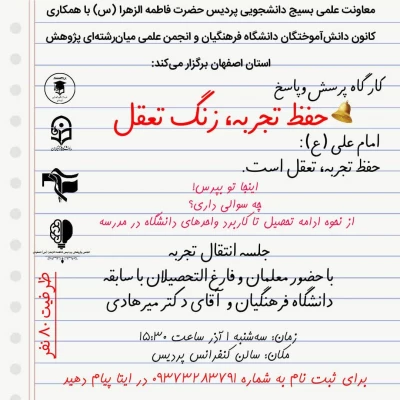 معاونت علمی بسیج دانشجویی پردیس حضرت فاطمه الزهرا (س) با همکاری
کانون دانش‌آموختگان دانشگاه فرهنگیان و انجمن علمی میان‌رشته‌ای پژوهش
استان اصفهان برگزار می‌کند:
کارگاه پرسش و پاسخ
حفظ تجربه، زنگ تعقل
امام علی (ع):
حفظ تجربه، تعقل است.
اینجا تو بپرس!
چه سوالی داری؟
از نحوه ادامه تحصیل تا کاربرد واحدهای دانشگاه در مدرسه
جلسه انتقال تجربه
با حضور معلمان و فارغ التحصیلان با سابقه
دانشگاه فرهنگیان و آقای دکتر میرهادی
ظرفیت ۸۰ نفر
زمان: سه‌شنبه ۱ آذر ساعت ۱۵:۳۰
مکان: سالن کنفرانس پردیس
برای ثبت نام به شماره ۰۹۳۷۳۲۸۳۷۹۱ در ایتا پیام دهید